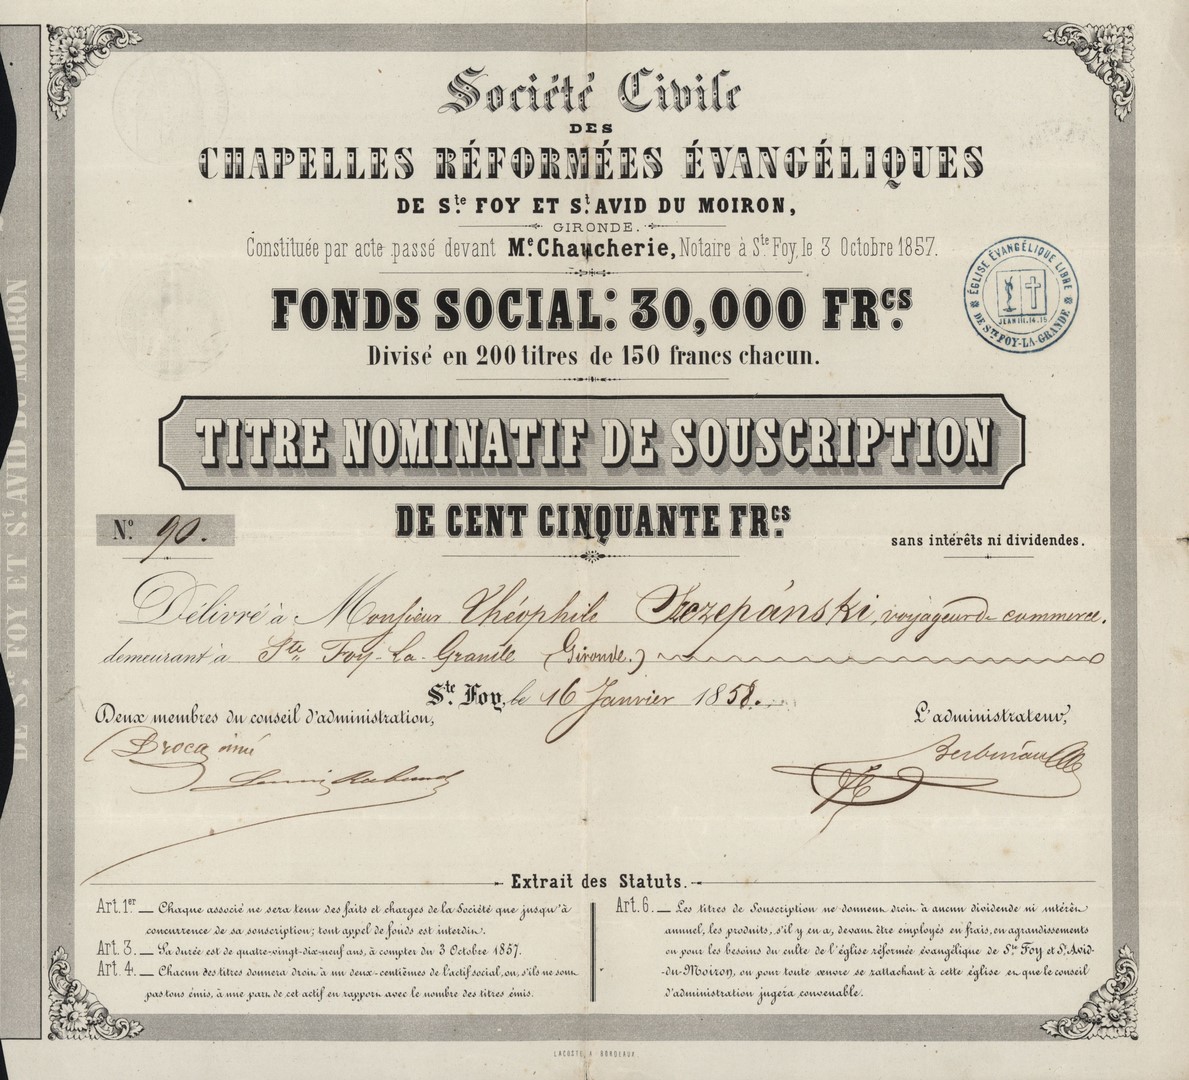 Société Civile
DES
CHAPELLES RÉFORMÉES ÉVANGÉLIQUES
DE Ste FOY ET St AVID DU MOIRON,
GIRONDE.
Constituée par acte passé devant Me Chaucherie, Notaire à Ste Foy, le 3 Octobre 1857.
ÉGLISE ÉVANGÉLIQUE LIBRE
JEAN III.14.15.
DE Ste FOY-LA-GRANDE
FONDS SOCIAL: 30,000 FRCS.
Divisé en 200 titres de 150 francs chacun.
TITRE NOMINATIF DE SOUSCRIPTION
DE CENT CINQUANTE FRCS.
No 90.
sans intérêts ni dividendes.
Délivré à Monsieur Théophile Szczepánski, voyageur de commerce.
demeurant à Ste Foy-La-Grande (Gironde.)
Ste Foy, le 16 Janvier 1858.
Deux membres du conseil d'administration,
L'administrateur,
Broca ainé
Extrait des Statuts.
Art. 1er — Chaque associé ne sera tenu des faits et charges de la Société que jusqu'à
concurrence de sa souscription; tout appel de fonds est interdit.
Art. 3. — Sa durée est de quatre-vingt-dix-neuf ans, à compter du 3 Octobre 1857.
Art. 4. — Chacun des titres donnera droit à un deux-centièmes de l'actif social, ou, s'ils ne sont
pas tous émis, à une part de cet actif en rapport avec le nombre des titres émis.
Art. 6. — Les titres de Souscription ne donnent droit à aucun dividende ni intérêt
annuel, les produits, s'il y en a, devant être employés en frais, en agrandissements
ou pour les besoins du culte de l'église réformée évangélique de Ste Foy et St Avid-
du-Moiron, ou pour toute œuvre se rattachant à cette église et que le conseil
d'administration jugera convenable.
LACOSTE, A BORDEAUX
DE Ste FOY ET St AVID DU MOIRON